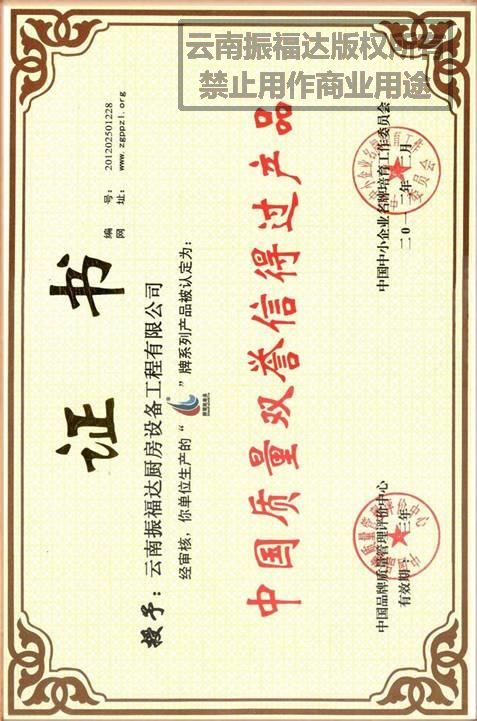 云南振福达版权所有
禁止用作商业用途
证书
编 号：201202501228
网 址：www.zgppzl.org
授予：云南振福达厨房设备工程有限公司
经审核，你单位生产的“ ”牌系列产品被认定为：
中国质量双誉信得过产品
中国品牌质量管理评价中心
有效期：三年
中国中小企业名牌培育工作委员会
二〇一二年二月